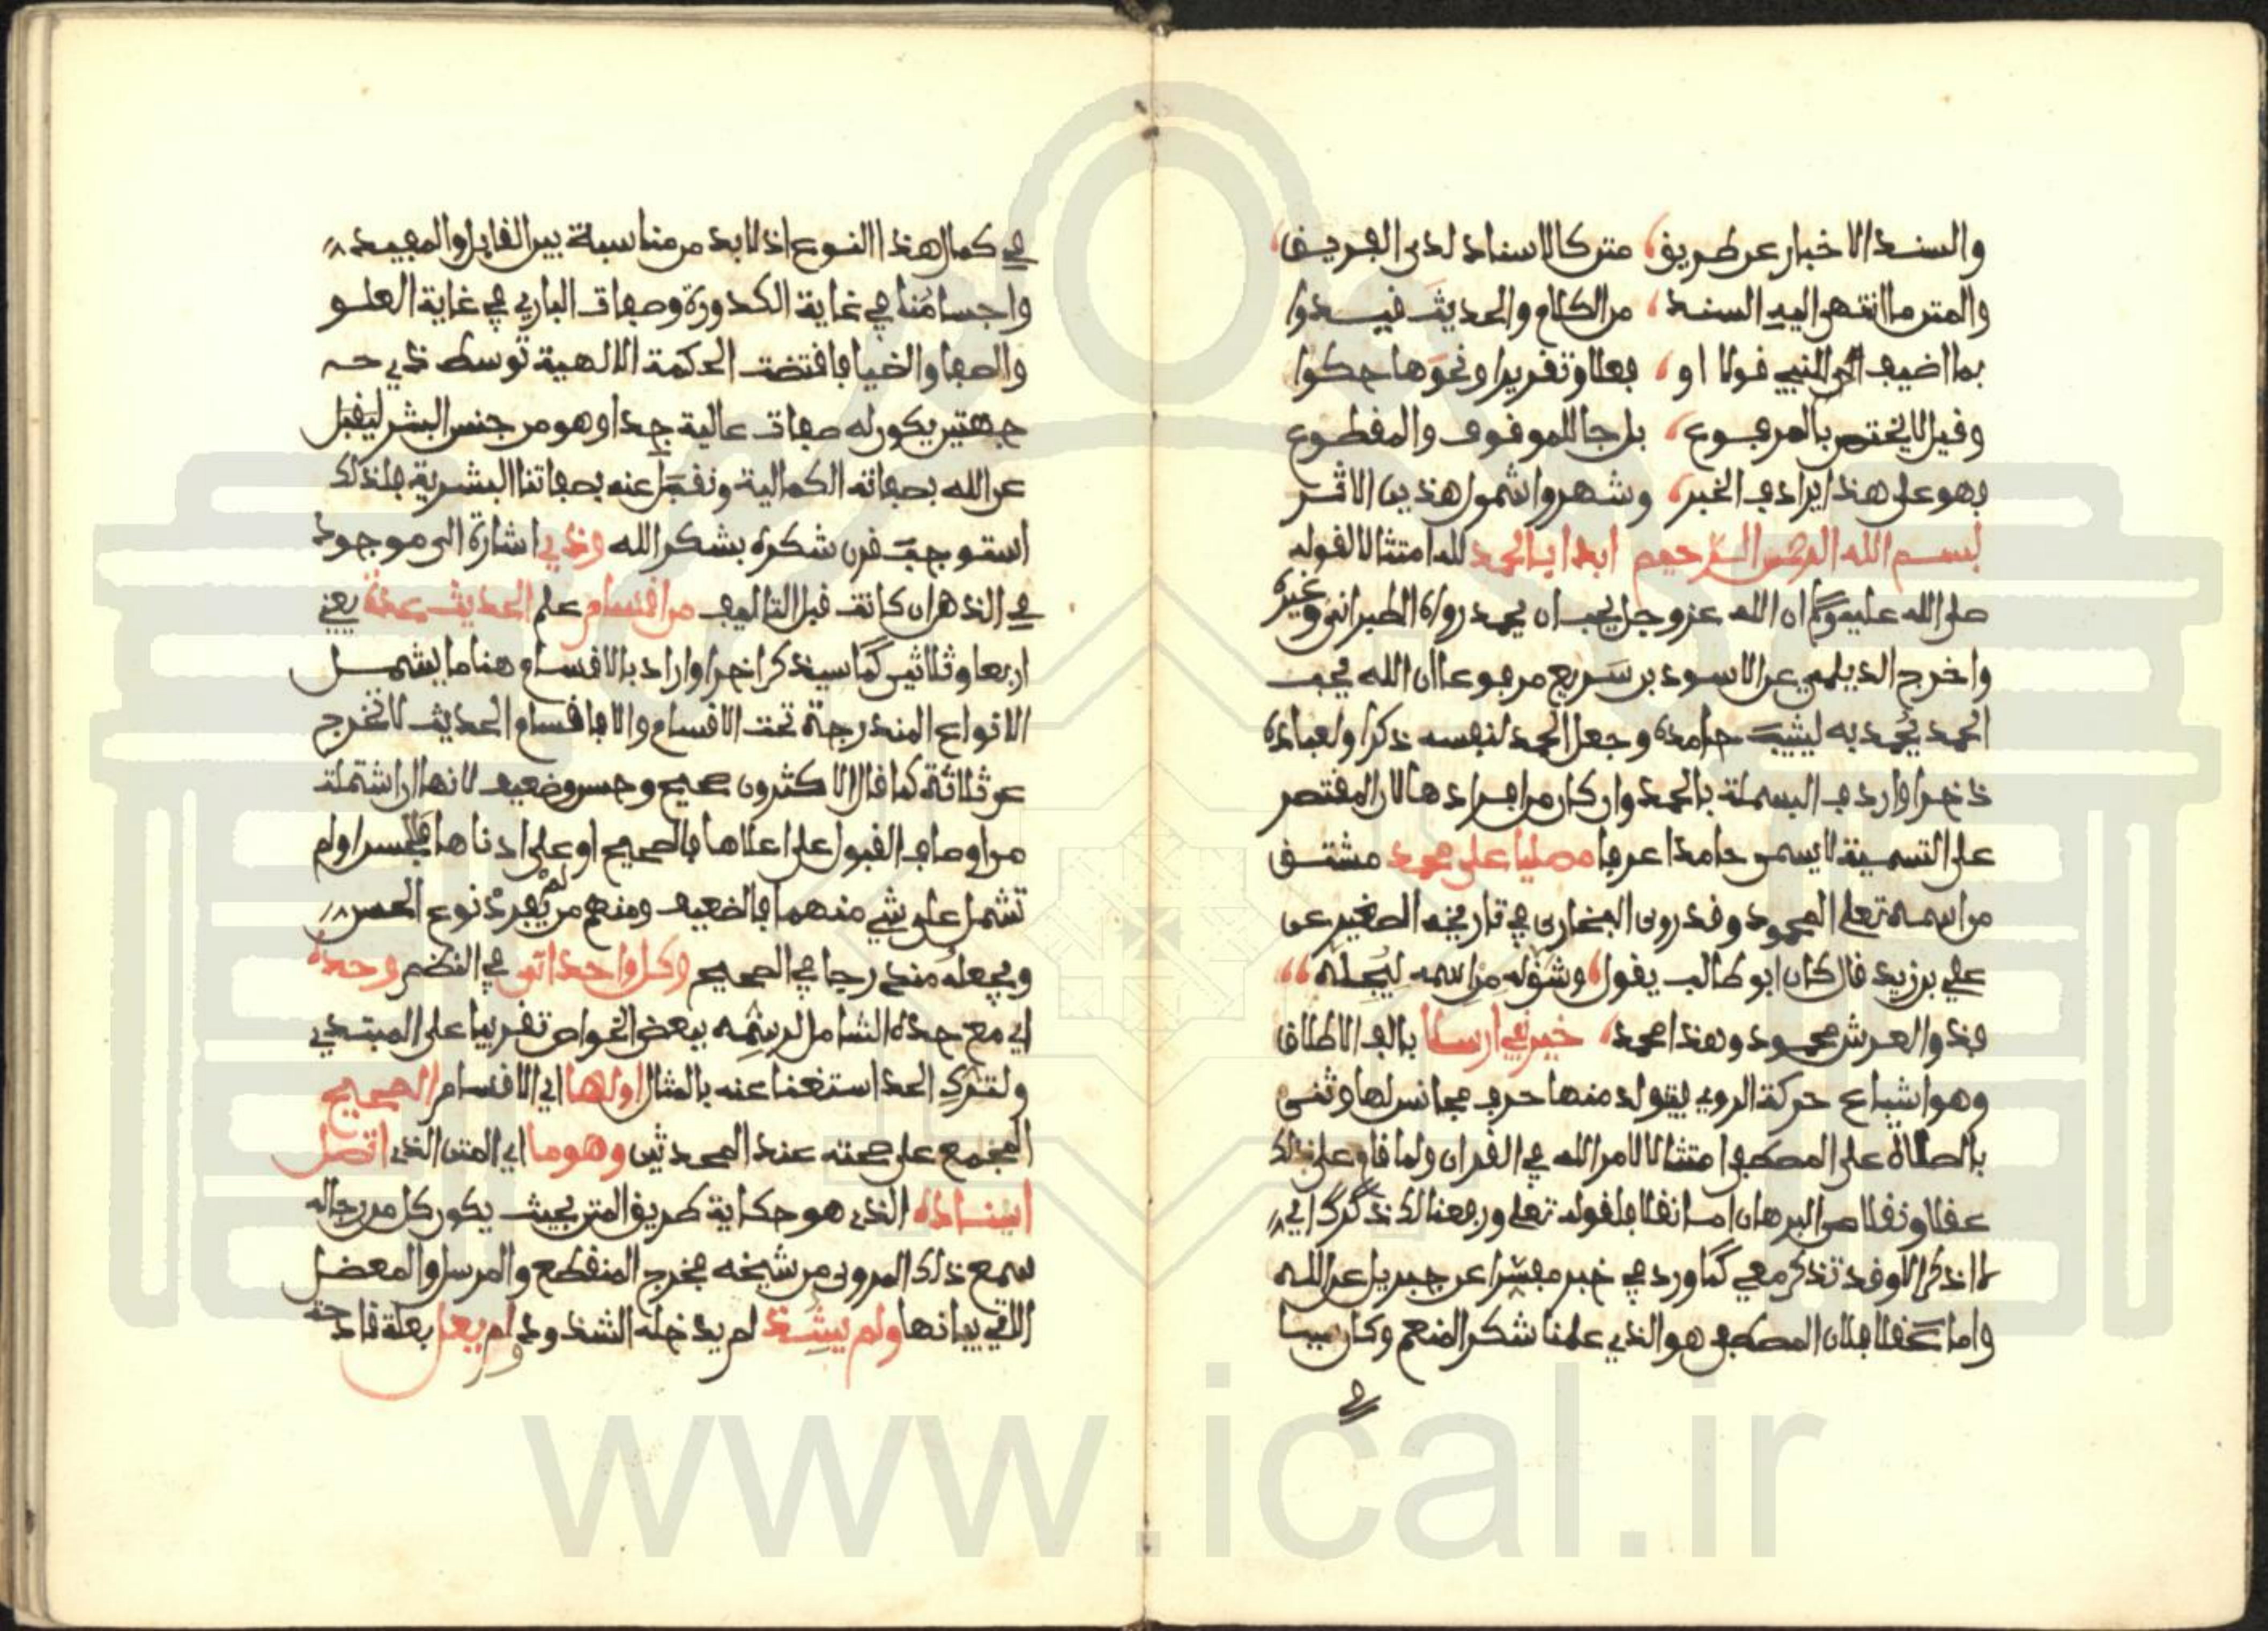 والسند الاخبار عن طريق، متن كالاسناد لدى الفريق،
والمتن ما انتهى اليه السند، من الكلام والحديث قيدوا
بما اضيف الى للنبي قولا او، فعلا وتقريرا ونحوها حكوا
وقيل لا يختص بالمرفوع، بل جا للموقوف والمقطوع
فهو على هذا يرادف الخبر، وشهروا شمول هذين الاثر
بسم الله الرحمن الرحيم ابدا بالحمد لله امتثالا لقوله
صلى الله عليه وسلم ان الله عز وجل يحب ان يحمد رواه الطبراني وغيره
واخرج الديلمي عن الاسود بن سريع مرفوعا ان الله يحب
الحمد يحمد به ليثيب حامده وجعل الحمد لنفسه ذكرا ولعباده
ذخرا واردف البسملة بالحمد وان كان من افرادها لان المقتصر
على التسمية لا يسمى حامدا عرفا مصليا على محمد مشتق
من اسمه تعلى المحمود وقد روى البخاري في تاريخه الصغير عن
علي بن زيد قال كان ابو طالب يقول، وشق له من اسمه ليجله،،
فذو العرش محمود وهذا محمد، خير نبي ارسلا بالف الاطلاق
وهو اشباع حركة الروي ليتولد منها حرف مجانس لها وثنى
بالصلاة على المصطفى امتثالا لامر الله في القران ولما قام على ذلك
عقلا ونقلا من البرهان اما نقلا فلقوله تعلى ورفعنا لك ذكرك اي
لا اذكر الا وقد تذكر معي كما ورد في خبر مفسرا عن جبريل عن الله
واما عقلا فلان المصطفى هو الذي علمنا شكر المنعم وكان سببا
في
في كمال هذا النوع اذ لا بد من مناسبة بين القابل والمفيد
واجسامنا في غاية الكدورة وصفات الباري في غاية العلو
والصفا والضيا فاقتضت الحكمة الالهية توسط ذي
جهتين يكون له صفات عالية جدا وهو من جنس البشر ليقبل
عن الله بصفاته الكمالية ونقبل عنه بصفاتنا البشرية فلذلك
استوجب قرن شكره بشكر الله وذي اشارة الى موجود
في الذهن ان كانت قبل التاليف من اقسام علم الحديث عدة يعني
اربعا وثلاثين كما سيذكر اخرا واراد بالاقسام هنا ما يشمل
الانواع المندرجة تحت الاقسام والا فاقسام الحديث لا تخرج
عن ثلاثة كما قال الاكثرون صحيح وحسن وضعيف لانها ان اشتملت
من اوصاف القبول على اعلاها فالصحيح او على ادناها فالحسن او لم
تشمل على شي منهما فالضعيف ومنهم من لم يفرد نوع الحسن
ويجعله مندرجا في الصحيح وكل واحد اتى في النظم وحده
اي مع حده الشامل لرسمه ببعض الخواص تقريبا على المبتدي
ولترك الحد استغنا عنه بالمثال اولها اي الاقسام الصحيح
المجمع على صحته عند المحدثين وهو ما اي المتن الذي اتصل
اسناده الذي هو حكاية طريق المتن بحيث يكون كل من رجاله
سمع ذلك المروى من شيخه فخرج المنقطع والمرسل والمعضل
الاتي بيانها ولم يشذ لم يدخله الشذوذ او لم يعل بعلة قادحة